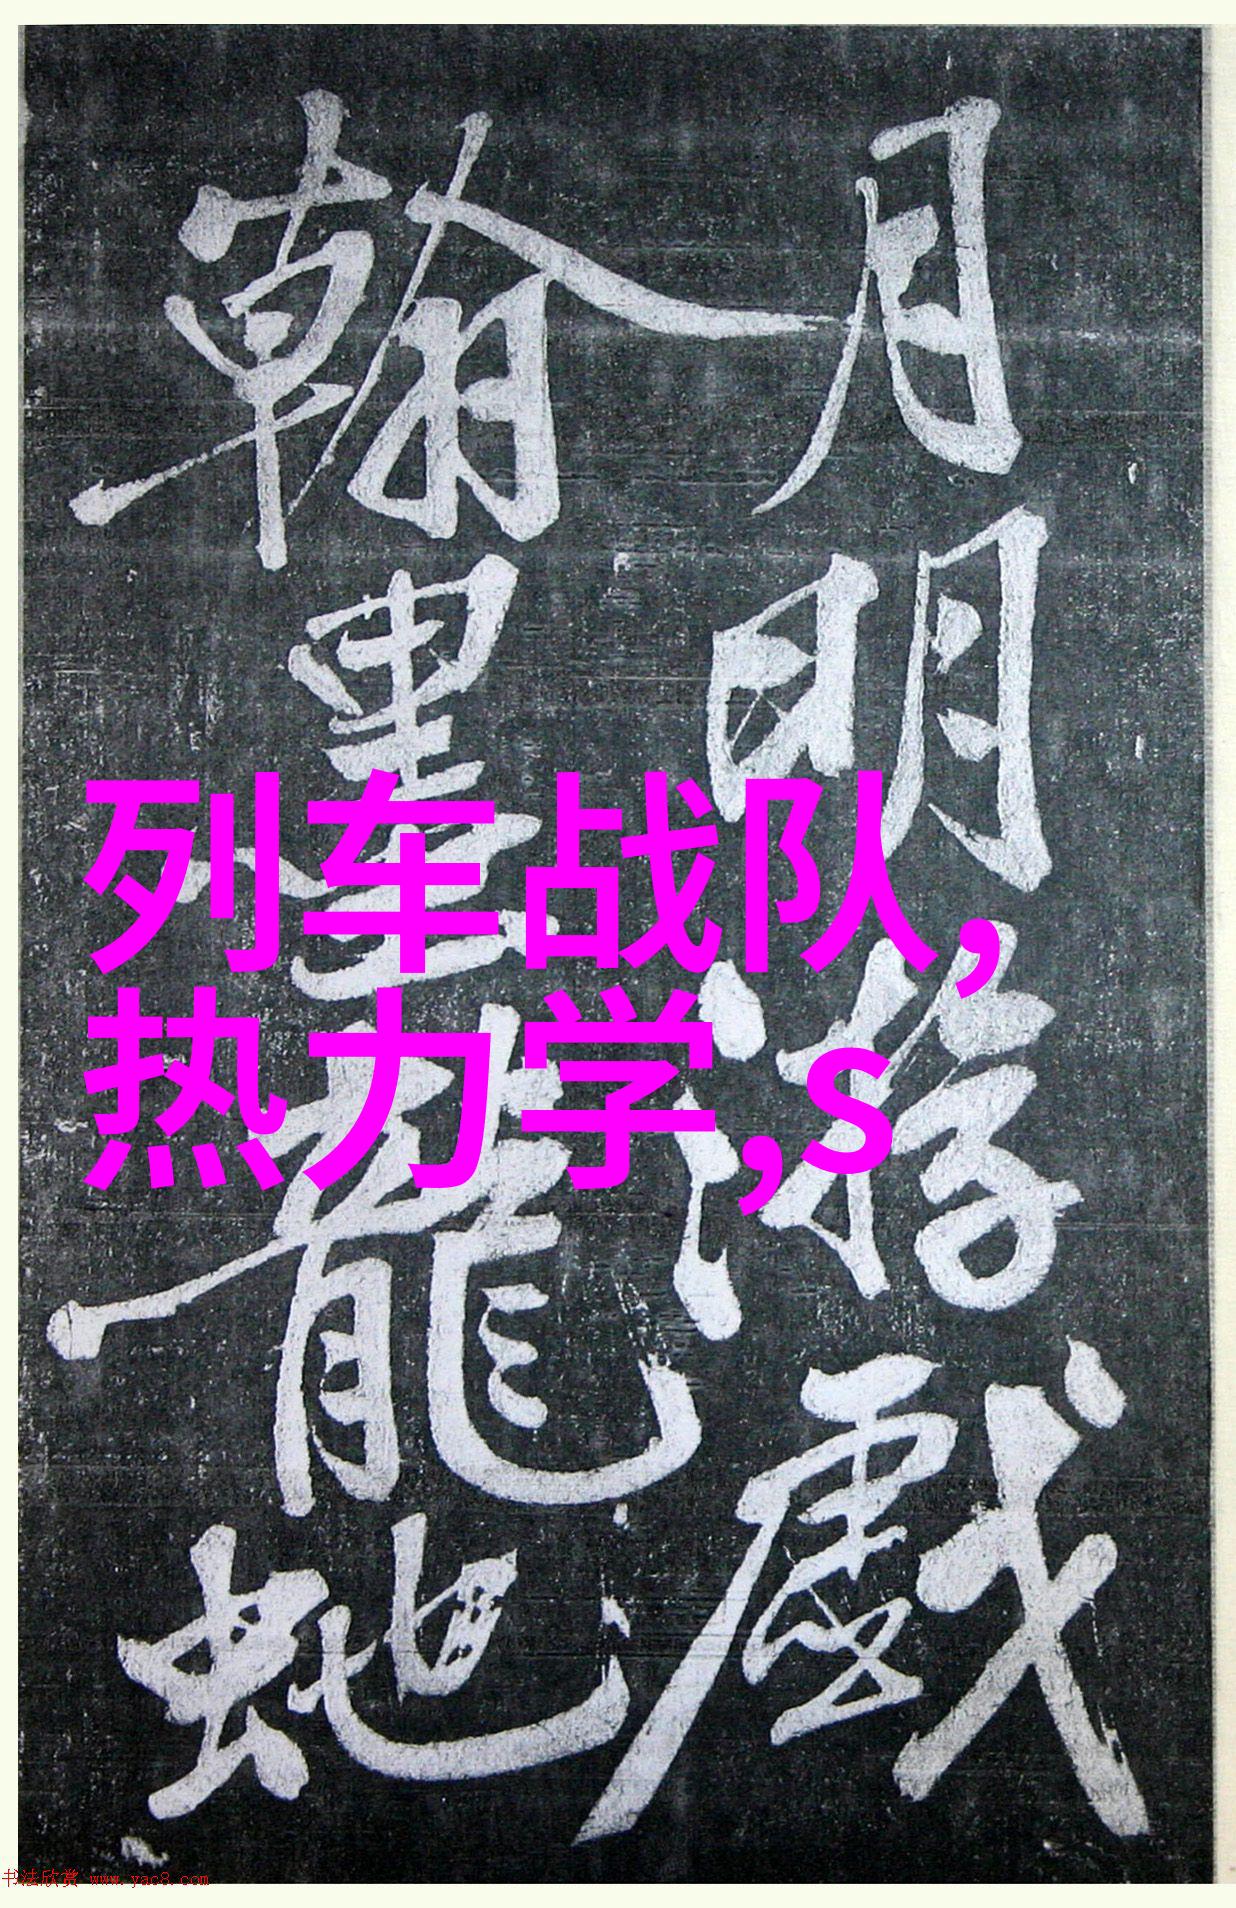 月明游戲
翰墨龍蛇
列车战队,
热力学,s
书法欣赏 www.yac8.com